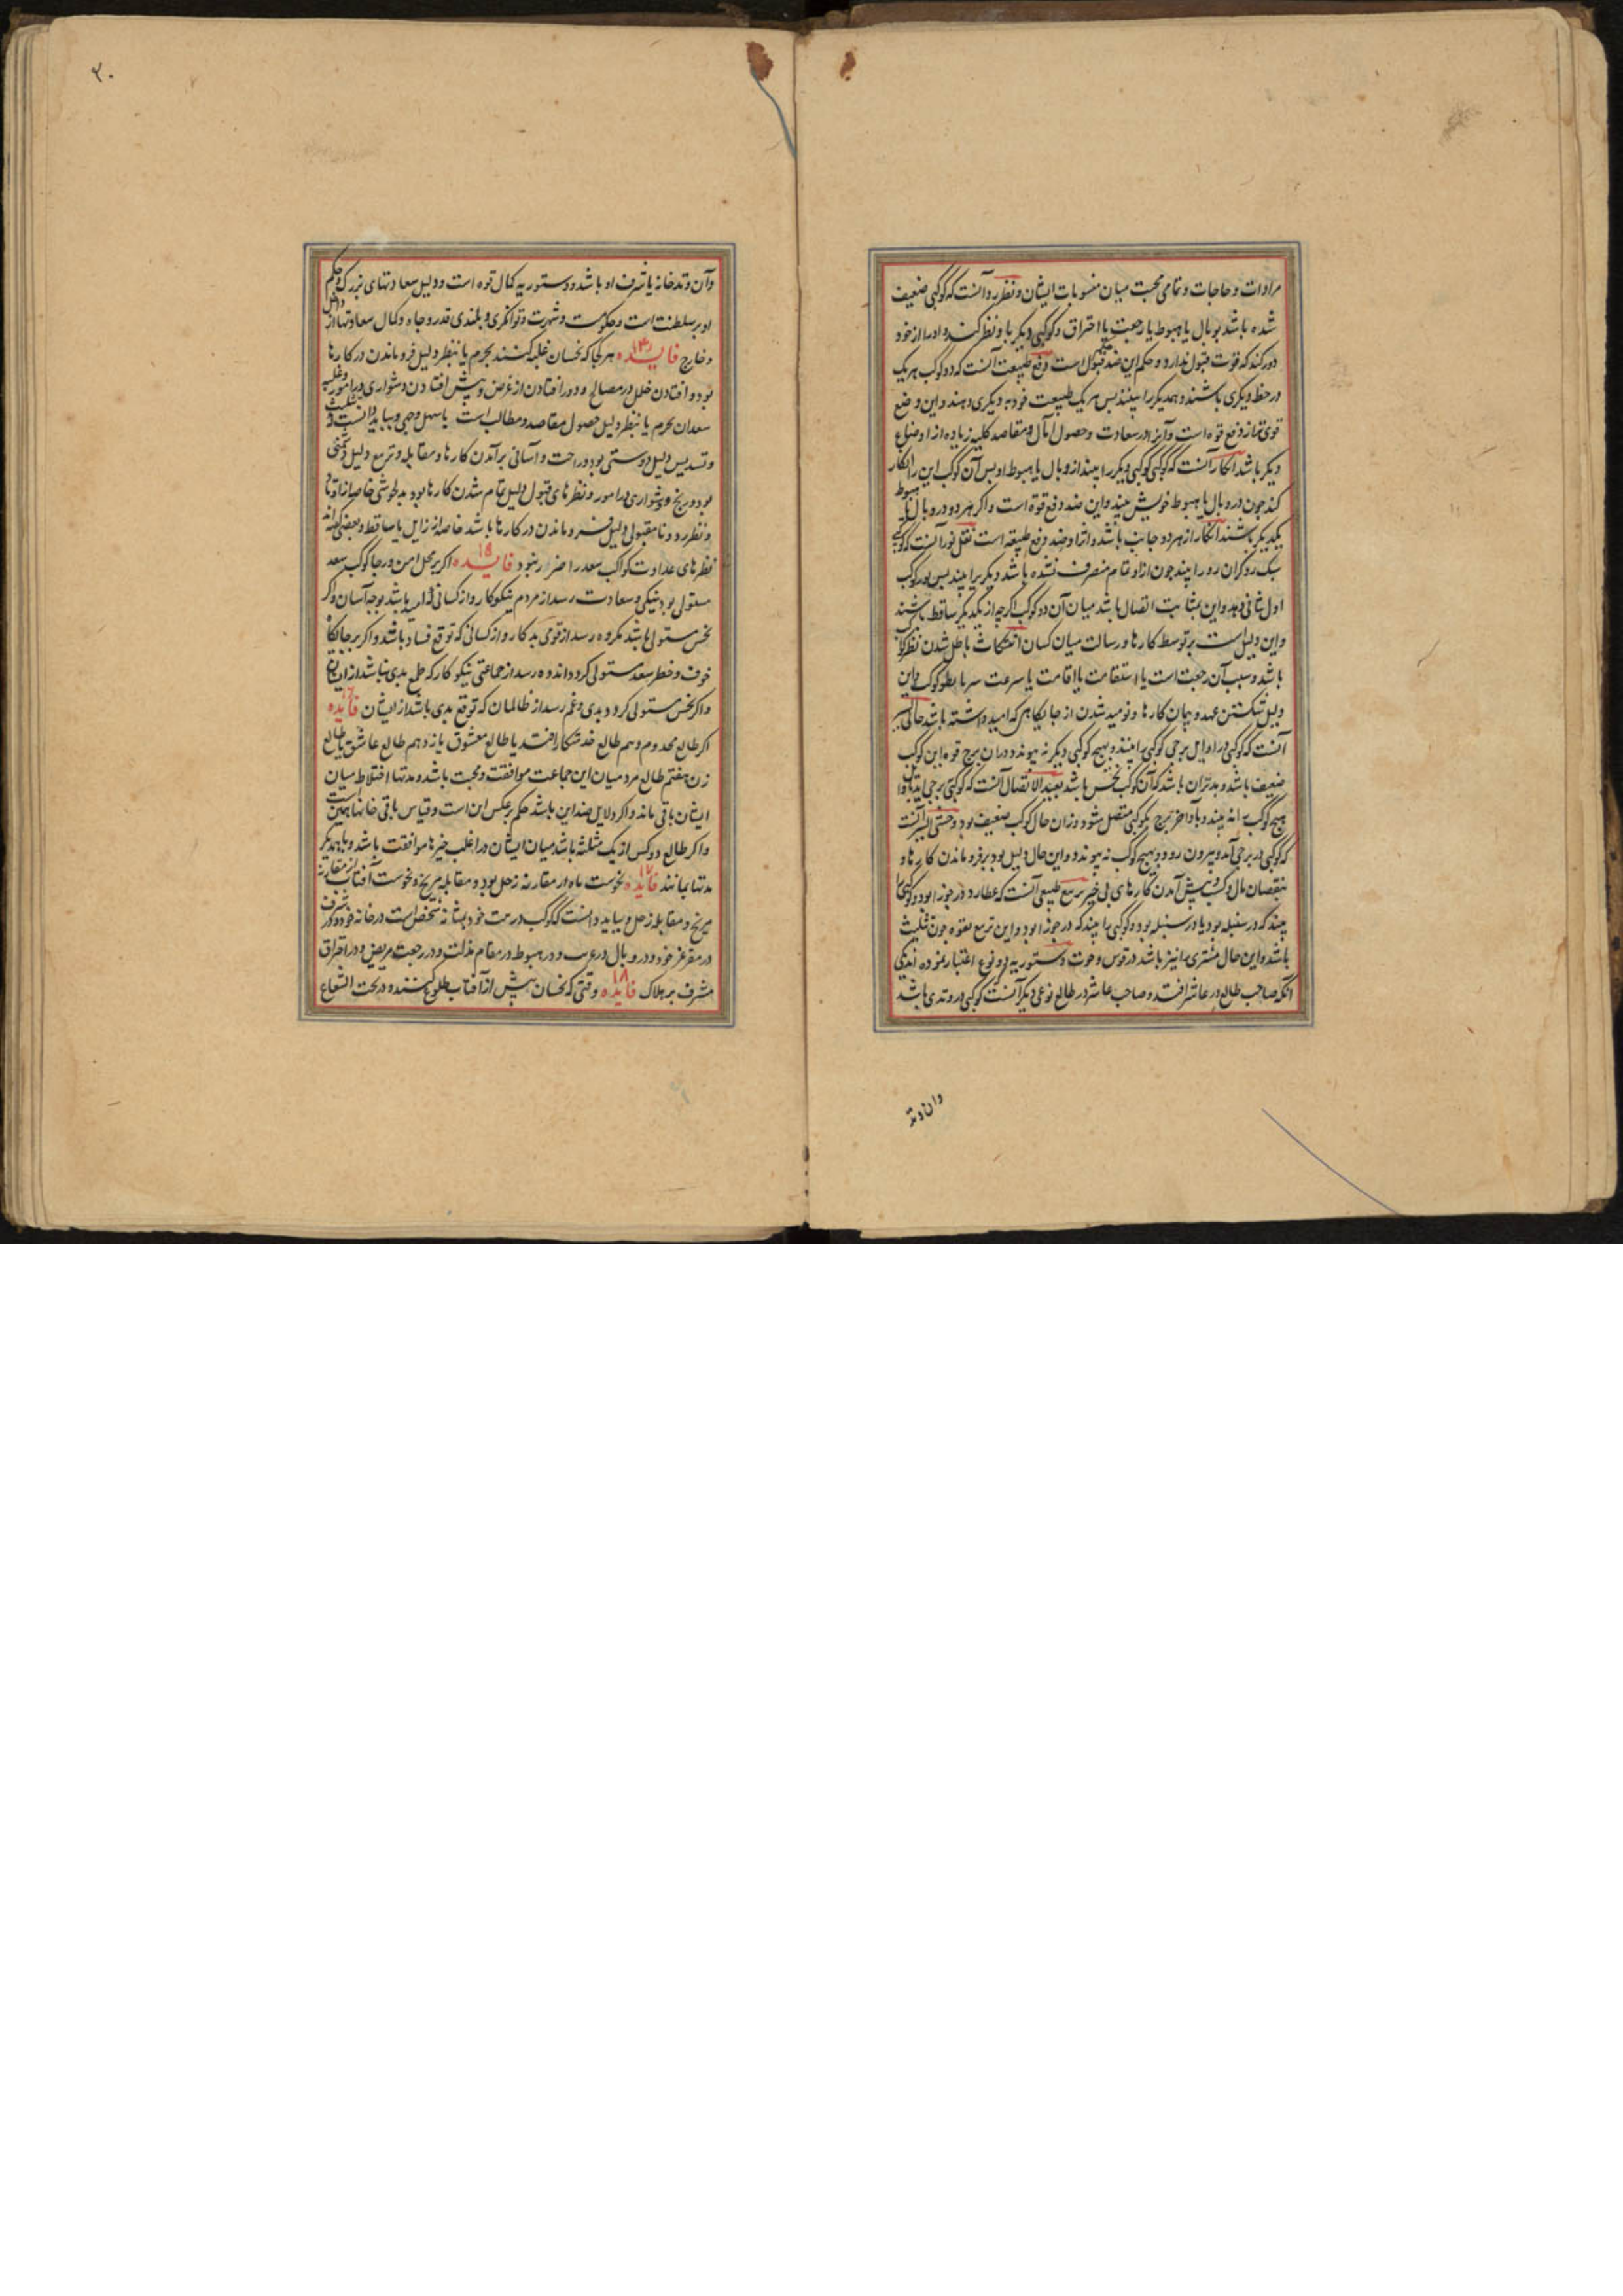 مرادات و حاجات و تمامی محبت میان منسوبات ایشان و نظر رد آنست که کوکبی ضعیف
شده باشد بوبال یا هبوط یا رجعت یا احتراق و کوکبی دیکر باو نظر کند و او را از خود
دور کند که قوت قبول ندارد و حکم این ضد قبول است دفع طبیعت آنست که دو کوکب هر یک
در حظ دیکری باشند و همدیکر را بینند بس هر یک طبیعت خود به دیکری دهند و این وضع
قوی تر از دفع قوه است و آنرا در سعادت و حصول آمال و مقاصد کلیه زیاده از اوضاع
دیکر باشد انکار آنست که کوکبی کوکبی دیکر را بیند از وبال یا هبوط او بس آن کوکب این را انکار
کند جون در وبال یا هبوط خویش بیند و این ضد دفع قوة است و اکر هر دو در وبال یا هبوط
یکدیکر باشند انکار از هر دو جانب باشد و انرا ضد دفع طبیعه است نقل نور آنست که کوکبی
سبک رو کران رو را بیند جون ازو تمام منصرف نشده باشد دیکری را بیند بس نور کوکب
اول بثانی دهد و این بمثابت اتصال باشد میان آن دو کوکب اکرچه از یکدیکر ساقط باشند
و این دلیل است بر توسط کارها و رسالت میان کسان انتکاث باطل شدن نظر کوکب
باشد و سبب آن رجعت است یا استقامت یا اقامت یا سرعت سر یا بطو کوکب و این
دلیل شکستن عهد و پیمان کارها و نومید شدن از جایکاهی که امید داشته باشد خالی السیر
آنست که کوکبی در اوایل برجی کوکبی را بیند و بهیچ کوکبی دیکر نه پیوندد در ان برج قوه این کوکب
ضعیف باشد و بدتر ان باشد که آن کوکب نحس باشد بعید الاتصال آنست که کوکبی برجی آید و اول
هیچ کوکب را نه بیند و بآخر برج بکوکبی متصل شود و در ان حال کوکب ضعیف بود وحشی السیر آنست
که کوکبی در برجی آمد و بیرون رود و بهیچ کوکب نه پیوندد و این حال دلیل بود بر فرو ماندن کارها و
نقصان مال و کسب و پیش آمدن کارهای بی خیر تربیع طبیعی آنست که عطارد در جوزا بود و کوکبی را
بیند که در سنبله بود یا در سنبله بود و کوکبی را بیند که در جوزا بود و این تربیع بقوه جون تثلیث
باشد و این حال مشتری را نیز باشد در قوس و حوت دستوریه دو نوع اعتبار نموده اند یکی
آنکه صاحب طالع در عاشر افتد و صاحب عاشر در طالع نوعی دیکر آنست کوکبی در وتدی باشد
وان وتد
۲۰
وآن وتد خانه یا شرف او باشد و دستوریه کمال قوه است و دلیل سعادتهای بزرک و حکم
او بر سلطنت است و حکومت و شهرت و توانکری و بلندی قدر و جاه و کمال سعادتها از داخل
و خارج فایده ۱۴ هر کجا که نحسان غلبه کنند بجرم یا بنظر دلیل فرو ماندن در کارها
بود و افتادن خلل در مصالح و دور افتادن از غرض و پیش افتادن دشواری در امور و غلبه
سعدان بجرم یا بنظر دلیل حصول مقاصد و مطالب است باسهل وجهی و بباید دانست که تثلیث
و تسدیس دلیل دوستی بود و راحت و آسانی برآمدن کارها و مقابله و تربیع دلیل دشمنی
بود و رنج و دشواری در امور و نظرهای قبول دلیل تمام شدن کارها بود بدلخوشی خاصه از اوتاد
و نظر رد و نامقبولی دلیل فرو ماندن در کارها باشد خاصه از زایل یا ساقط و بعضی کفته اند
نظرهای عداوت کواکب سعد را ضرار نبود فایده ۱۵ اکر بر محل امن و رجا کوکب سعد
مستولی بود نیکی و سعادت رسد از مردم نیکوکار و از کسانی که امید باشد بوجه آسان و اکر
نحس مستولی باشد مکروه رسد از قومی بدکار و از کسانی که توقع فساد باشد و اکر بر جایکاه
خوف و خطر سعد مستولی کردد اندوه رسد از جماعتی نیکوکار که طمع بدی نباشد از ایشان
و اکر نحس مستولی کردد بدی و غم رسد از ظالمان که توقع بدی باشد از ایشان فایده ۱۶
اکر طالع مخدوم دهم طالع خدمتکار افتد یا طالع معشوق یازدهم طالع عاشق یا طالع
زن هفتم طالع مرد میان این جماعت موافقت و محبت باشد و مدتها اختلاط میان
ایشان باقی ماند و اکر دلایل ضد این باشد حکم برعکس این است و قیاس باقی خانها همین است
و اکر طالع دو کس از یک مثلثه باشد میان ایشان در اغلب خیرها موافقت باشد و با همدیکر
مدتها بمانند فایده ۱۷ نحوست ماه از مقارنه زحل بود و مقابله مریخ و نحوست آفتاب از مقارنه
مریخ و مقابله زحل و بباید دانست که کوکب در بیت خود بمثابه شخص است در خانه خود و در شرف
در مقر عز خود و در وبال در غربت و در هبوط در مقام مذلت و در رجعت مریض و در احتراق
مشرف بر هلاک فایده ۱۸ وقتی که نحسان پیش از آفتاب طلوع کننده در تحت الشعاع